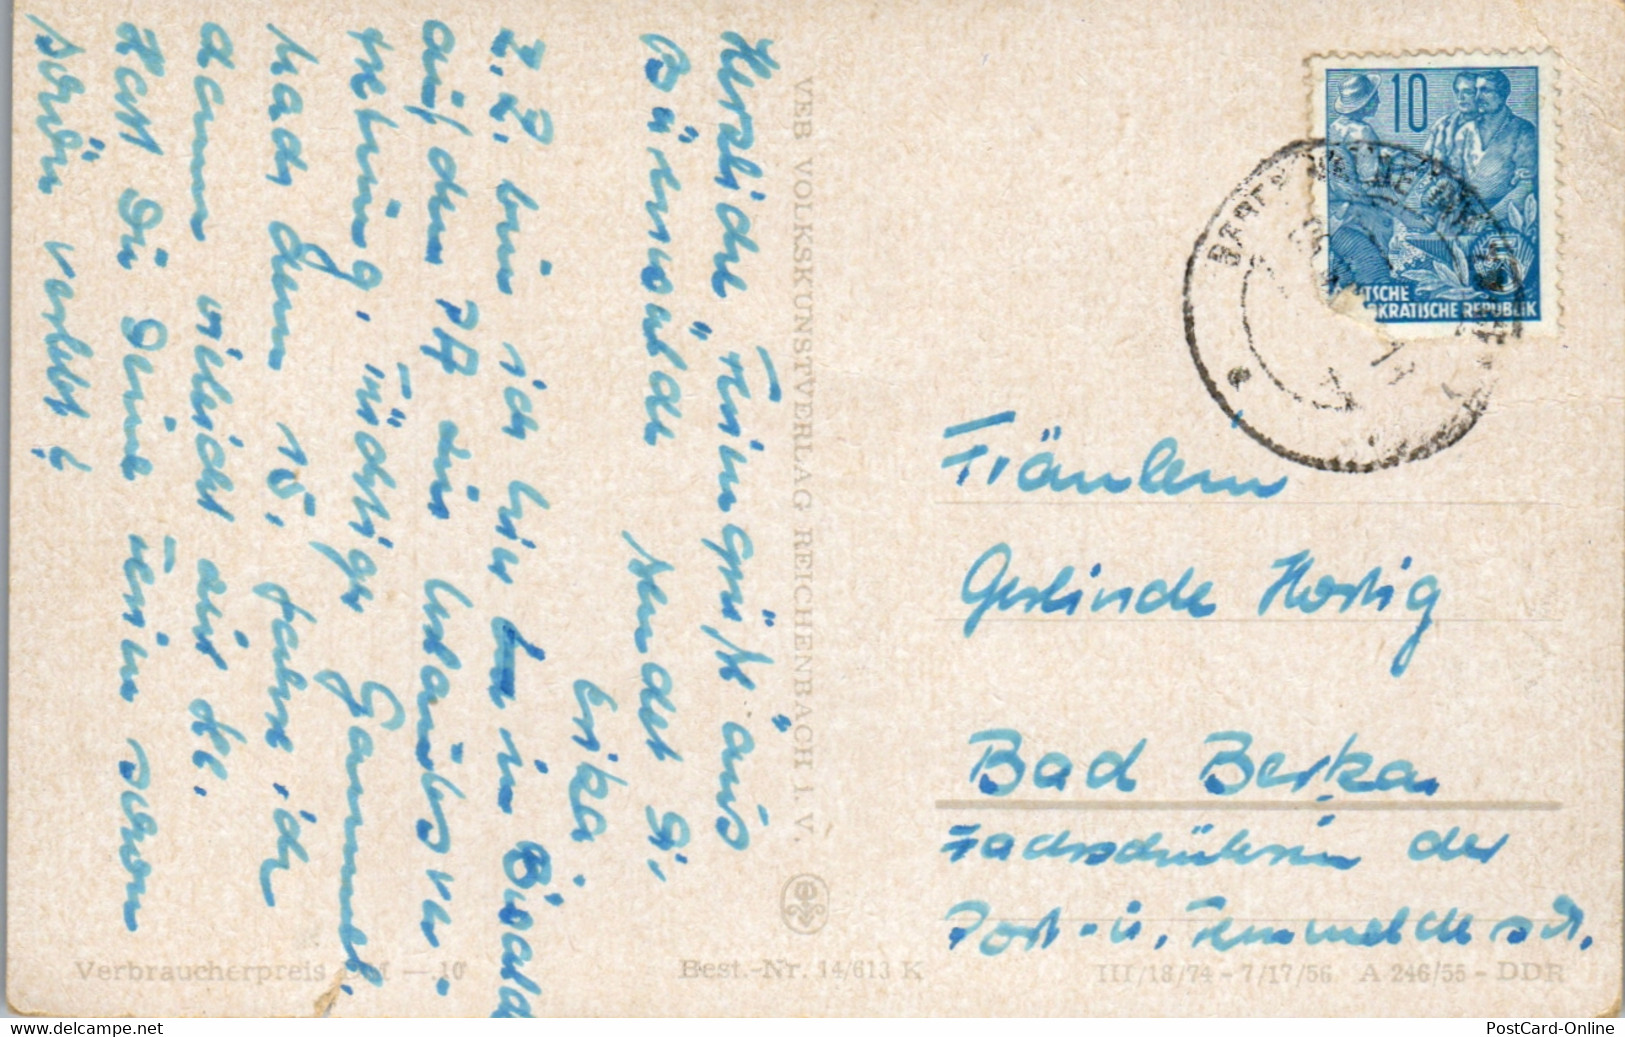 Herzliche Feriengrüße aus
Bärenwalde sendet Di.
Erika.
Z. Z. bin ich hier in
auf dem PA zur Urlaubsver-
tretung, tüchtiger Gammel.
Nach dem 15. fahre ich
dann vieleicht aus
Hast Du Deine Ferien schon
schön verlebt?
VEB VOLKSKUNSTVERLAG REICHENBACH I. V.
10
DEUTSCHE
DEMOKRATISCHE REPUBLIK
Fräulein
Gerlinde Hertig
Bad Berka
Fachschülerin der
Post- u. Fernmeldesch.
Verbraucherpreis DM —.10
Best.-Nr. 14/613 K
III/18/74 - 7/17/56 A 246/55 - DDR
delcampe.net
PostCard-Online